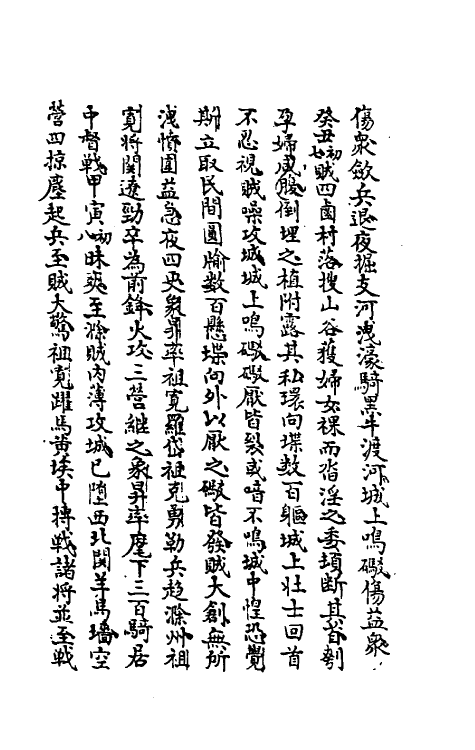 傷衆斂兵退夜掘支河洩濠騎黑牛渡河城上鳴礮傷益衆
癸丑初七賊四鹵村落搜山谷獲婦女裸而沓淫之委頓斷其首刳
孕婦咸股倒埋之植附露其私環向堞數百軀城上壯士回首
不忍視賊噪攻城城上鳴礮礮厭皆裂或喑不鳴城中惶恐覺
斯立取民間圊牏數百懸堞向外以厭之礮皆發賊大創無所
洩憤圍益急夜四更象昇率祖寬羅岱祖克勇勒兵趨滁州祖
寬將関遼勁卒為前鋒火攻三營繼之象昇率麾下三百騎居
中督戰甲寅初八昧爽至滁賊內薄攻城已墮西北関羊馬墻空
營四掠塵起兵至賊大驚祖寬躍馬黄埃中搏戰諸將並至戰